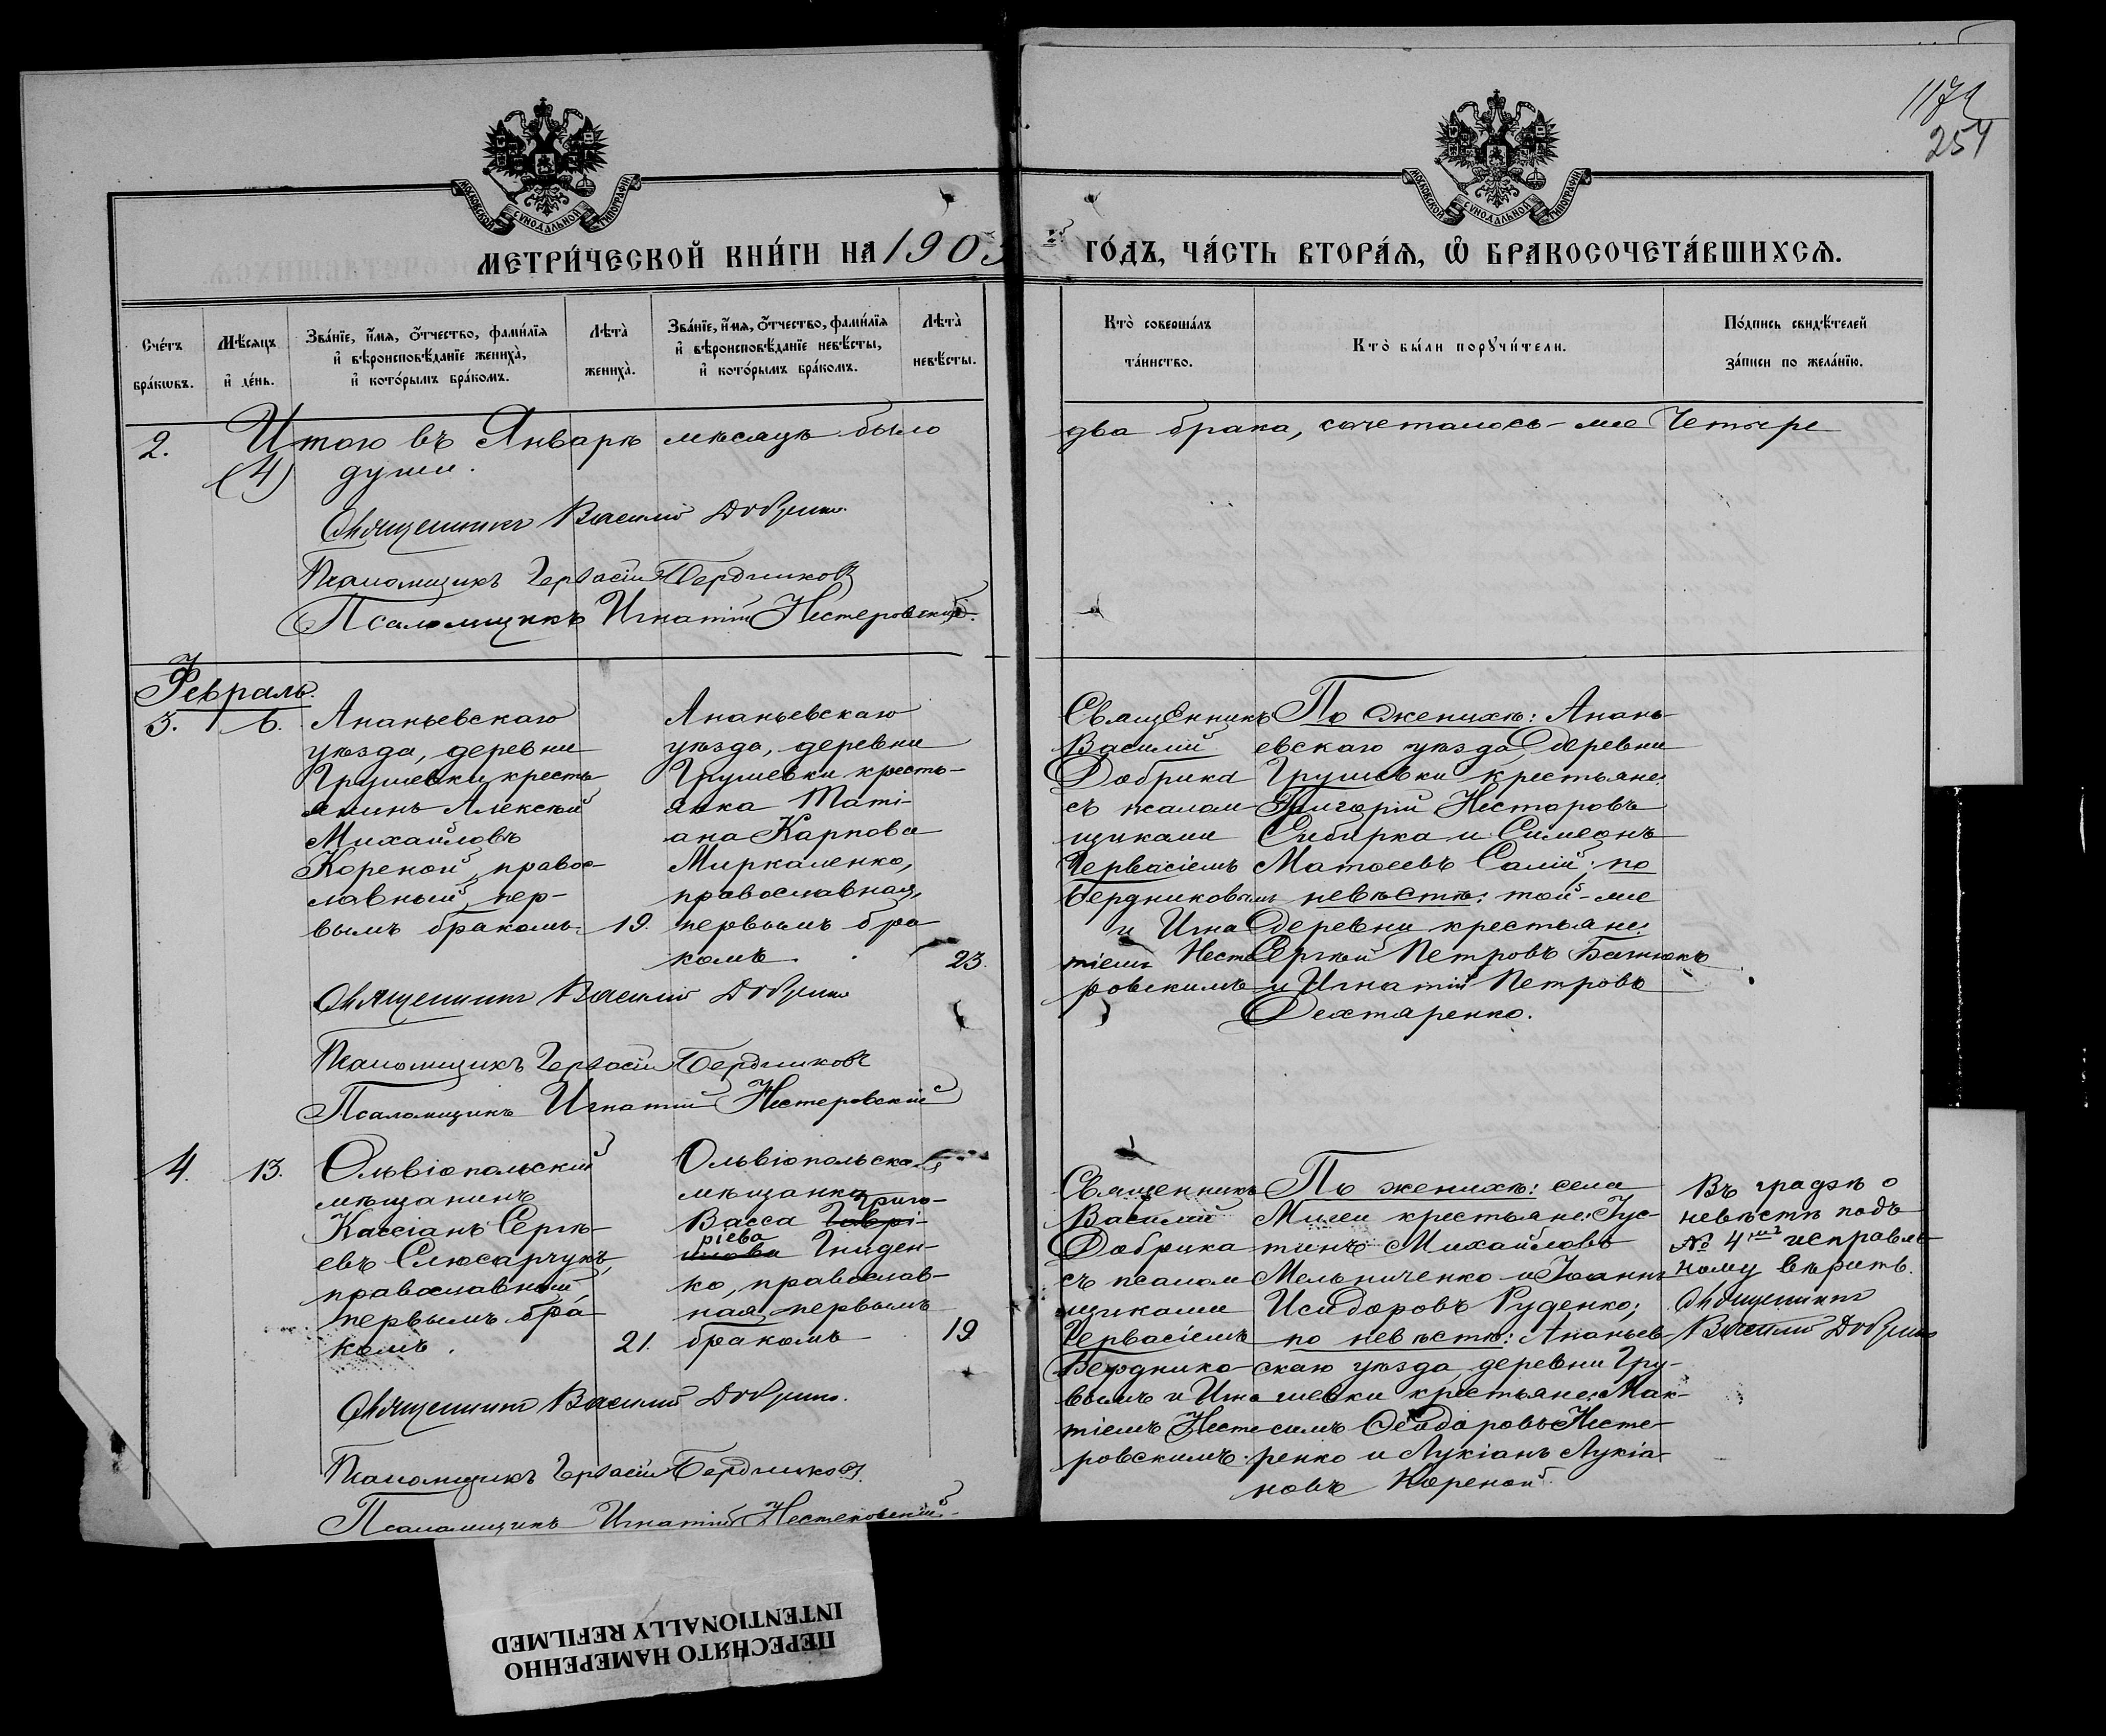 117
254
МОСКОВСКОЙ СѴНОДАЛЬНОЙ ТИПОГРАФІИ
МОСКОВСКОЙ СѴНОДАЛЬНОЙ ТИПОГРАФІИ
МЕТРИ́ЧЕСКОЙ КНИ́ГИ НА 1903
ГО́ДЪ, ЧА́СТЬ ВТОРА́Ѧ, Ѽ БРАКОСОЧЕТА́ВШИХСѦ.
Сче́тъ бра́кѡвъ.
Мѣ́сяцъ и҆ де́нь.
Зва́нїе, и҆́мѧ, ѻ҆́тчество, фами́лїѧ
и҆ вѣроисповѣ́данїе жениха̀,
и҆ кото́рымъ бра́комъ.
Лѣта̀ жениха̀.
Зва́нїе, и҆́мѧ, ѻ҆́тчество, фами́лїѧ
и҆ вѣроисповѣ́данїе невѣ́сты,
и҆ кото́рымъ бра́комъ.
Лѣта̀ невѣ́сты.
Кто̀ соверша́лъ
та́инство.
Кто̀ бы́ли порꙋчи́тели.
По́дпись свидѣ́телей
за́писи по жела́нїю.
2. Итого въ Январѣ мѣсяцѣ было два брака, сочеталось-же четыре
(4) души.
Священникъ Василій Добрика
Псаломщикъ Гервасій Бердниковъ
Псаломщикъ Игнатій Нестеровскій.
Февраль.
3. 6.
Ананьевскаго
уѣзда, деревни
Грушевки кресть-
янинъ Алексѣй
Михаиловъ
Кореной, правос-
лавный, пер-
вымъ бракомъ. 19.
Ананьевскаго
уѣзда, деревни
Грушевки кресть-
янка Таті-
ана Карпова
Миркаленко,
православная,
первымъ бра
комъ. 23.
Священникъ
Василий
Добрика
съ псалом
щиками
Гервасіемъ
Бердниковымъ
и Игна
тіемъ Несте
ровскимъ
По женихѣ: Анань-
евскаго уѣзда, деревни
Грушевки крестьяне:
Григорій Несторовъ
Сибирка и Симеонъ
Матѳеевъ Салій; по
невѣстѣ: той-же
деревни крестьяне:
Сергѣй Петровъ Батюкъ
и Игнатій Петровъ
Дехтяренко.
Священникъ Василій Добрика
Псаломщикъ Гервасій Бердниковъ
Псаломщикъ Игнатій Нестеровскій
4. 13.
Ольвіопольскій
мѣщанинъ
Кассіанъ Сергѣ-
евъ Слюсарчукъ,
православный
первымъ бра
комъ. 21.
Ольвіопольская
мѣщанка
Григо-
Васса Гаврі-
ріева
илова Гниден-
ко, православ-
ная, первымъ
бракомъ 19
Священникъ
Василий
Добрика
съ псалом
щиками
Гервасіемъ
Бердников-
вымъ и Игна
тіемъ Несте
ровскимъ.
По женихѣ: села
крестьяне: Іус-
тинъ Михайловъ
Мельниченко и Іоаннъ
Исидоровъ Руденко;
по невѣстѣ: Ананьев-
скаго уѣзда деревни Гру-
шевки крестьяне: Мак-
симъ Ѳеодоровъ Несте-
ренко и Лукіанъ Лукіа-
новъ Кореной.
Въ графѣ о
невѣстѣ подъ
№ 4мъ исправлен-
ному вѣрить.
Священникъ
Василій Добрика
Священникъ Василій Добрика.
Псаломщикъ Гервасій Бердниковъ.
Псаломщикъ Игнатій Нестеровскій.
ПЕРЕСНЯТО НАМЕРЕННО
INTENTIONALLY REFILMED